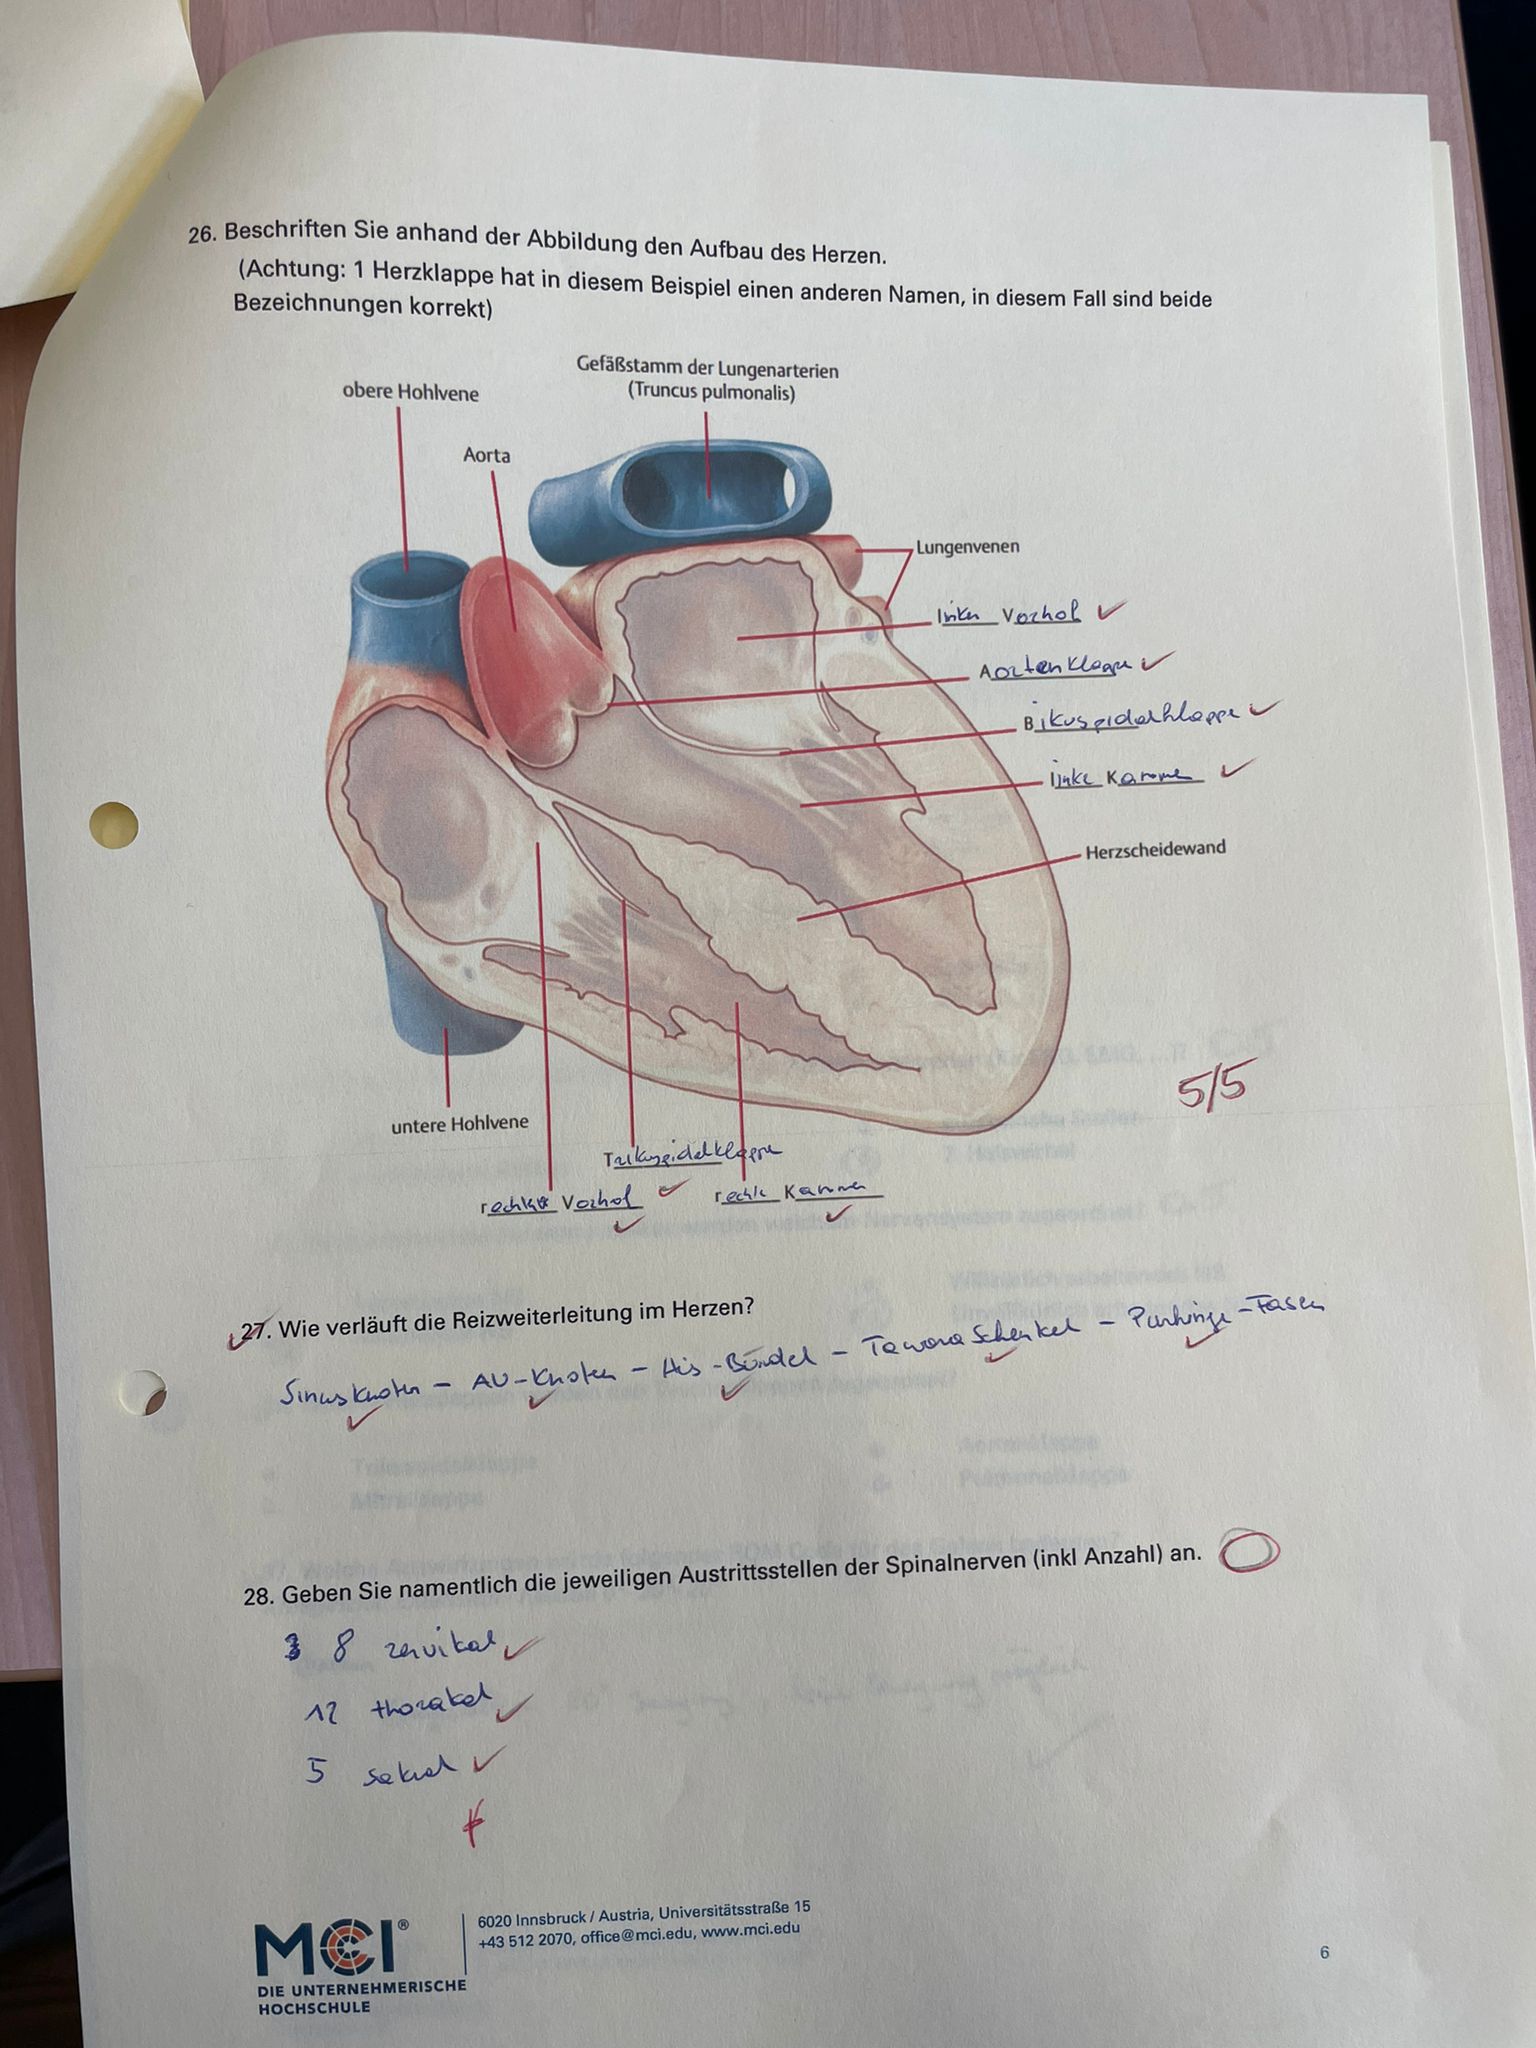 26. Beschriften Sie anhand der Abbildung den Aufbau des Herzen.
(Achtung: 1 Herzklappe hat in diesem Beispiel einen anderen Namen, in diesem Fall sind beide
Bezeichnungen korrekt)
Gefäßstamm der Lungenarterien
(Truncus pulmonalis)
obere Hohlvene
Aorta
Lungenvenen
linker Vorhof
Aortenklappe
Bikuspidalklappe
linke Kammer
Herzscheidewand
5/5
untere Hohlvene
Trikuspidalklappe
rechter Vorhof
rechte Kammer
27. Wie verläuft die Reizweiterleitung im Herzen?
Sinusknoten - AV-Knoten - His-Bündel - Tawara Schenkel - Purkinje-Fasern
28. Geben Sie namentlich die jeweiligen Austrittsstellen der Spinalnerven (inkl Anzahl) an.
8 zervikal
12 thorakal
5 sakral
MCI®
DIE UNTERNEHMERISCHE
HOCHSCHULE
6020 Innsbruck / Austria, Universitätsstraße 15
+43 512 2070, office@mci.edu, www.mci.edu
6